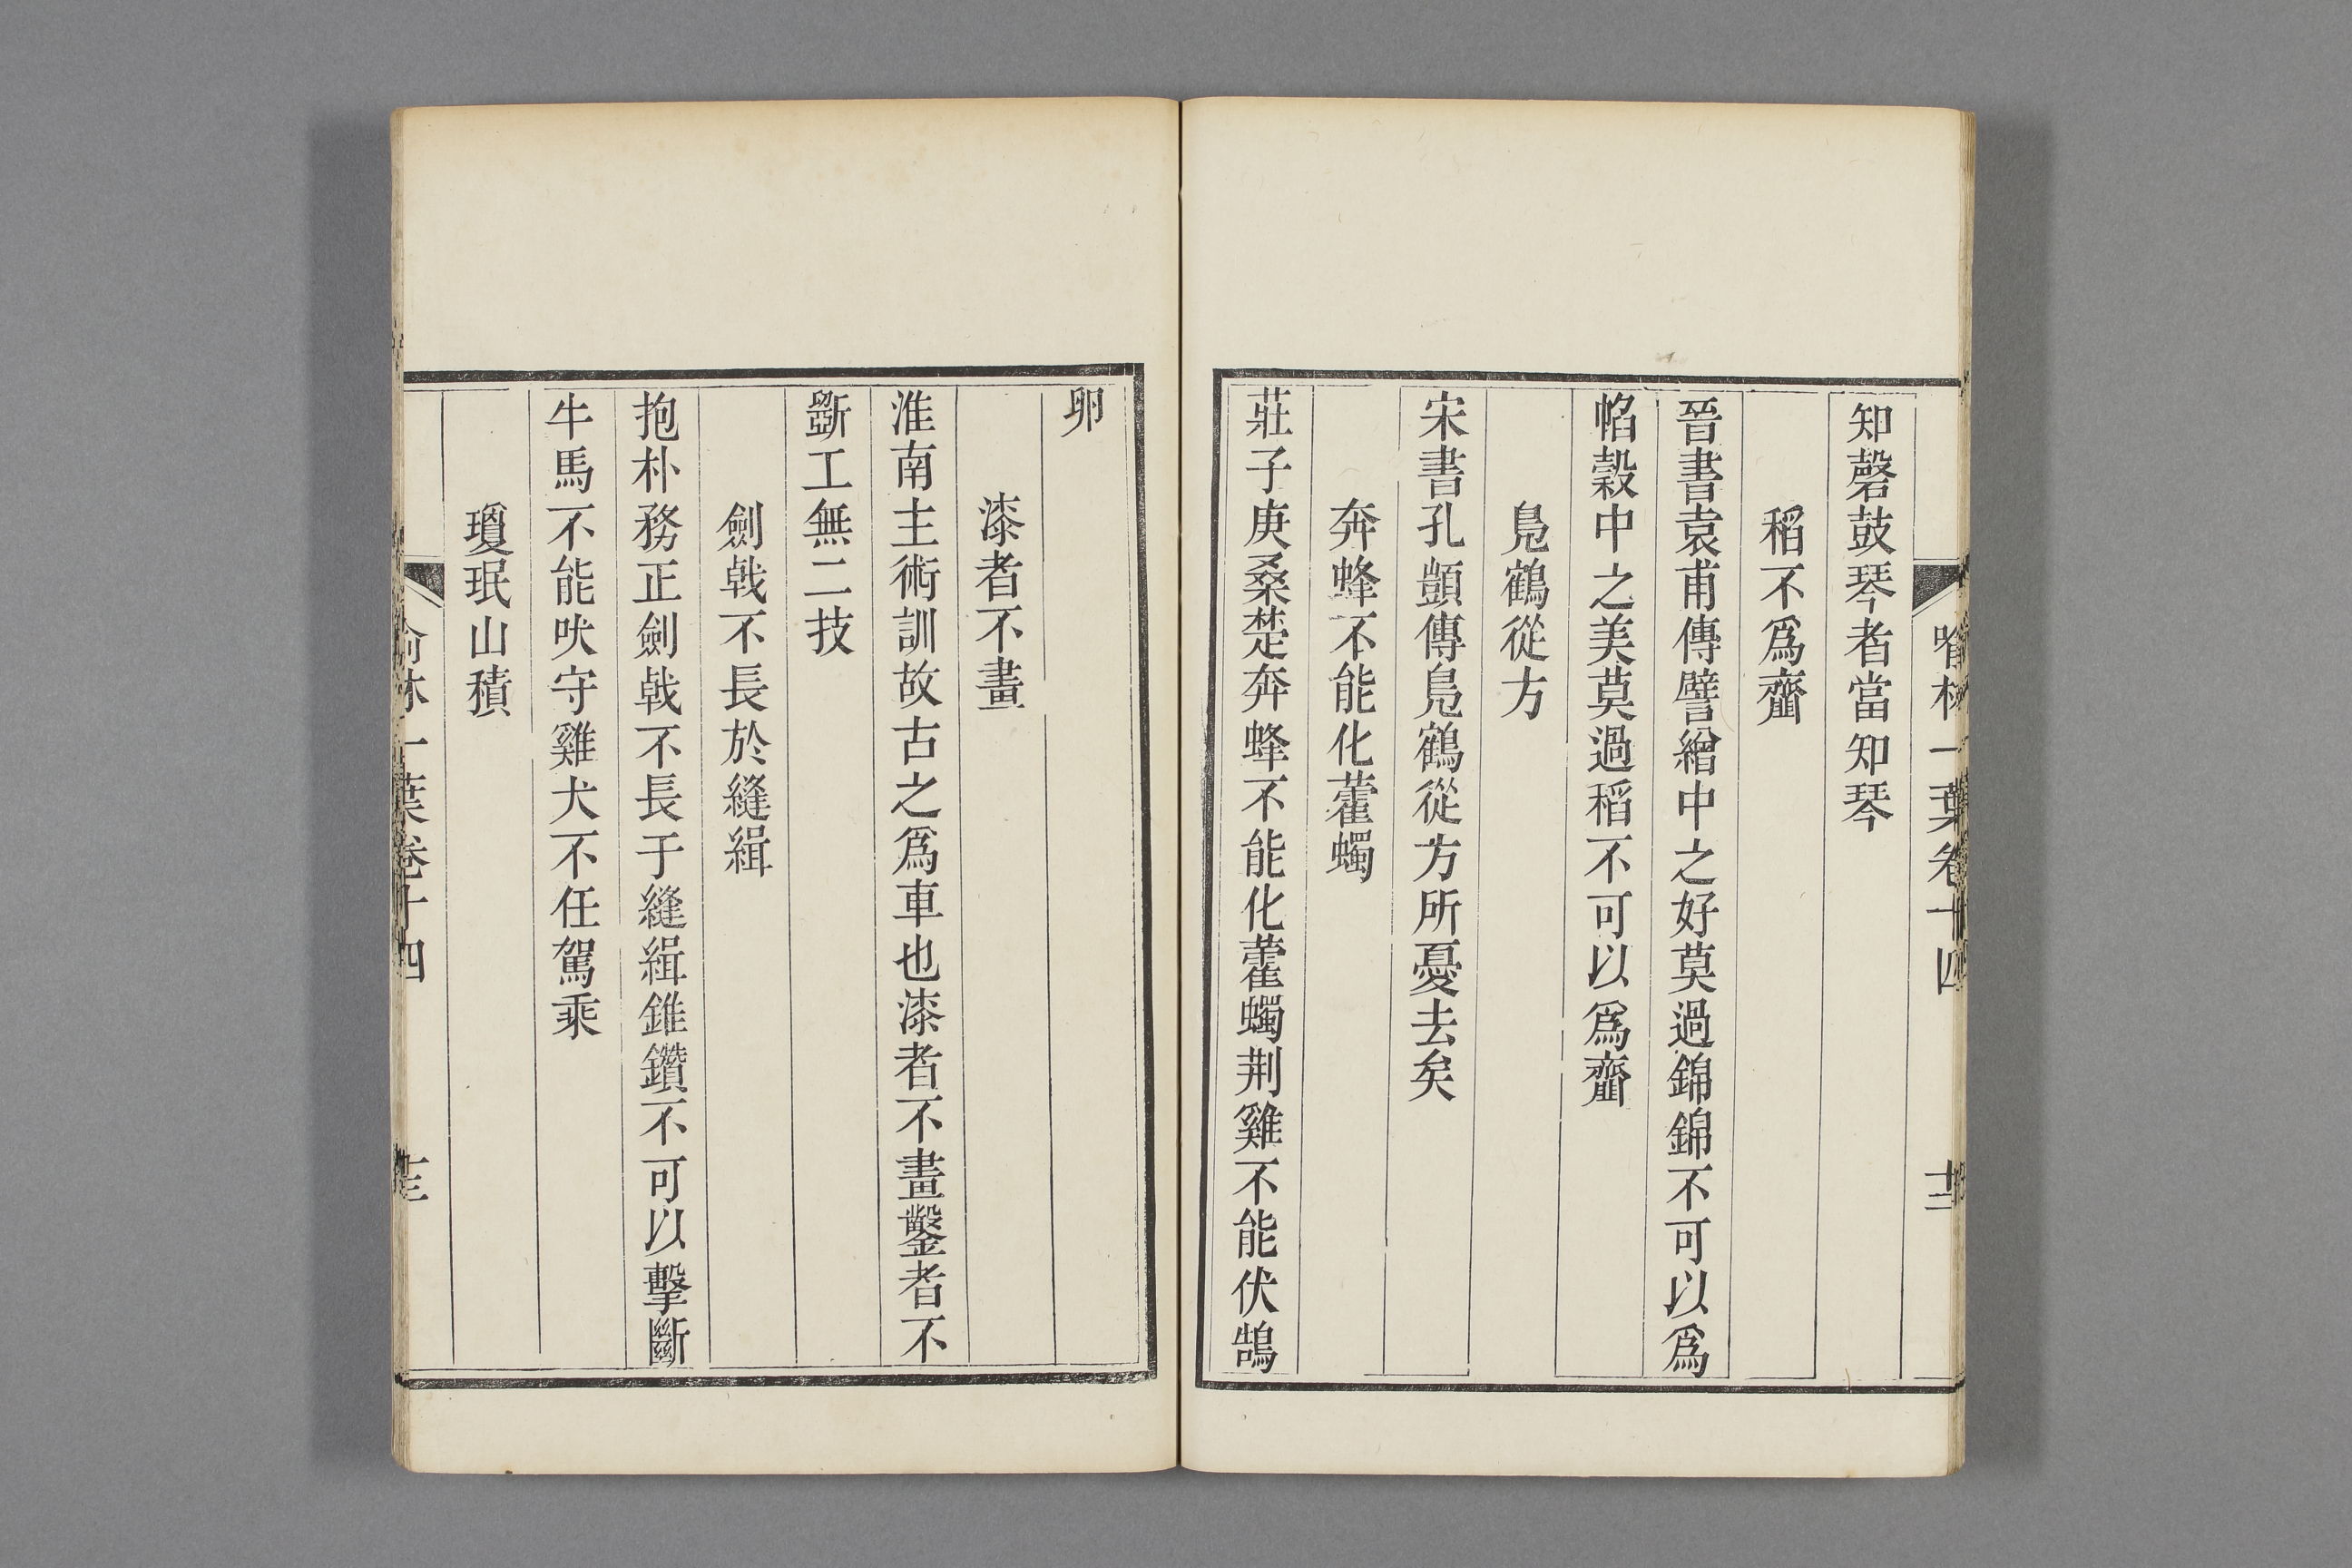 喻林一葉卷十四
十二
知磬鼓琴者當知琴
稻不爲齏
晉書袁甫傳譬繒中之好莫過錦錦不可以爲
幍穀中之美莫過稻不可以爲齏
鳧鶴從方
宋書孔顗傳鳧鶴從方所憂去矣
奔蜂不能化藿蠋
莊子庚桑楚奔蜂不能化藿蠋荆雞不能伏鵠
卵
漆者不畫
淮南主術訓故古之爲車也漆者不畫鑿者不
斵工無二技
劍戟不長於縫緝
抱朴務正劍戟不長于縫緝錐鑽不可以擊斷
牛馬不能吠守雞犬不任駕乘
瓊珉山積
喻林一葉卷十四